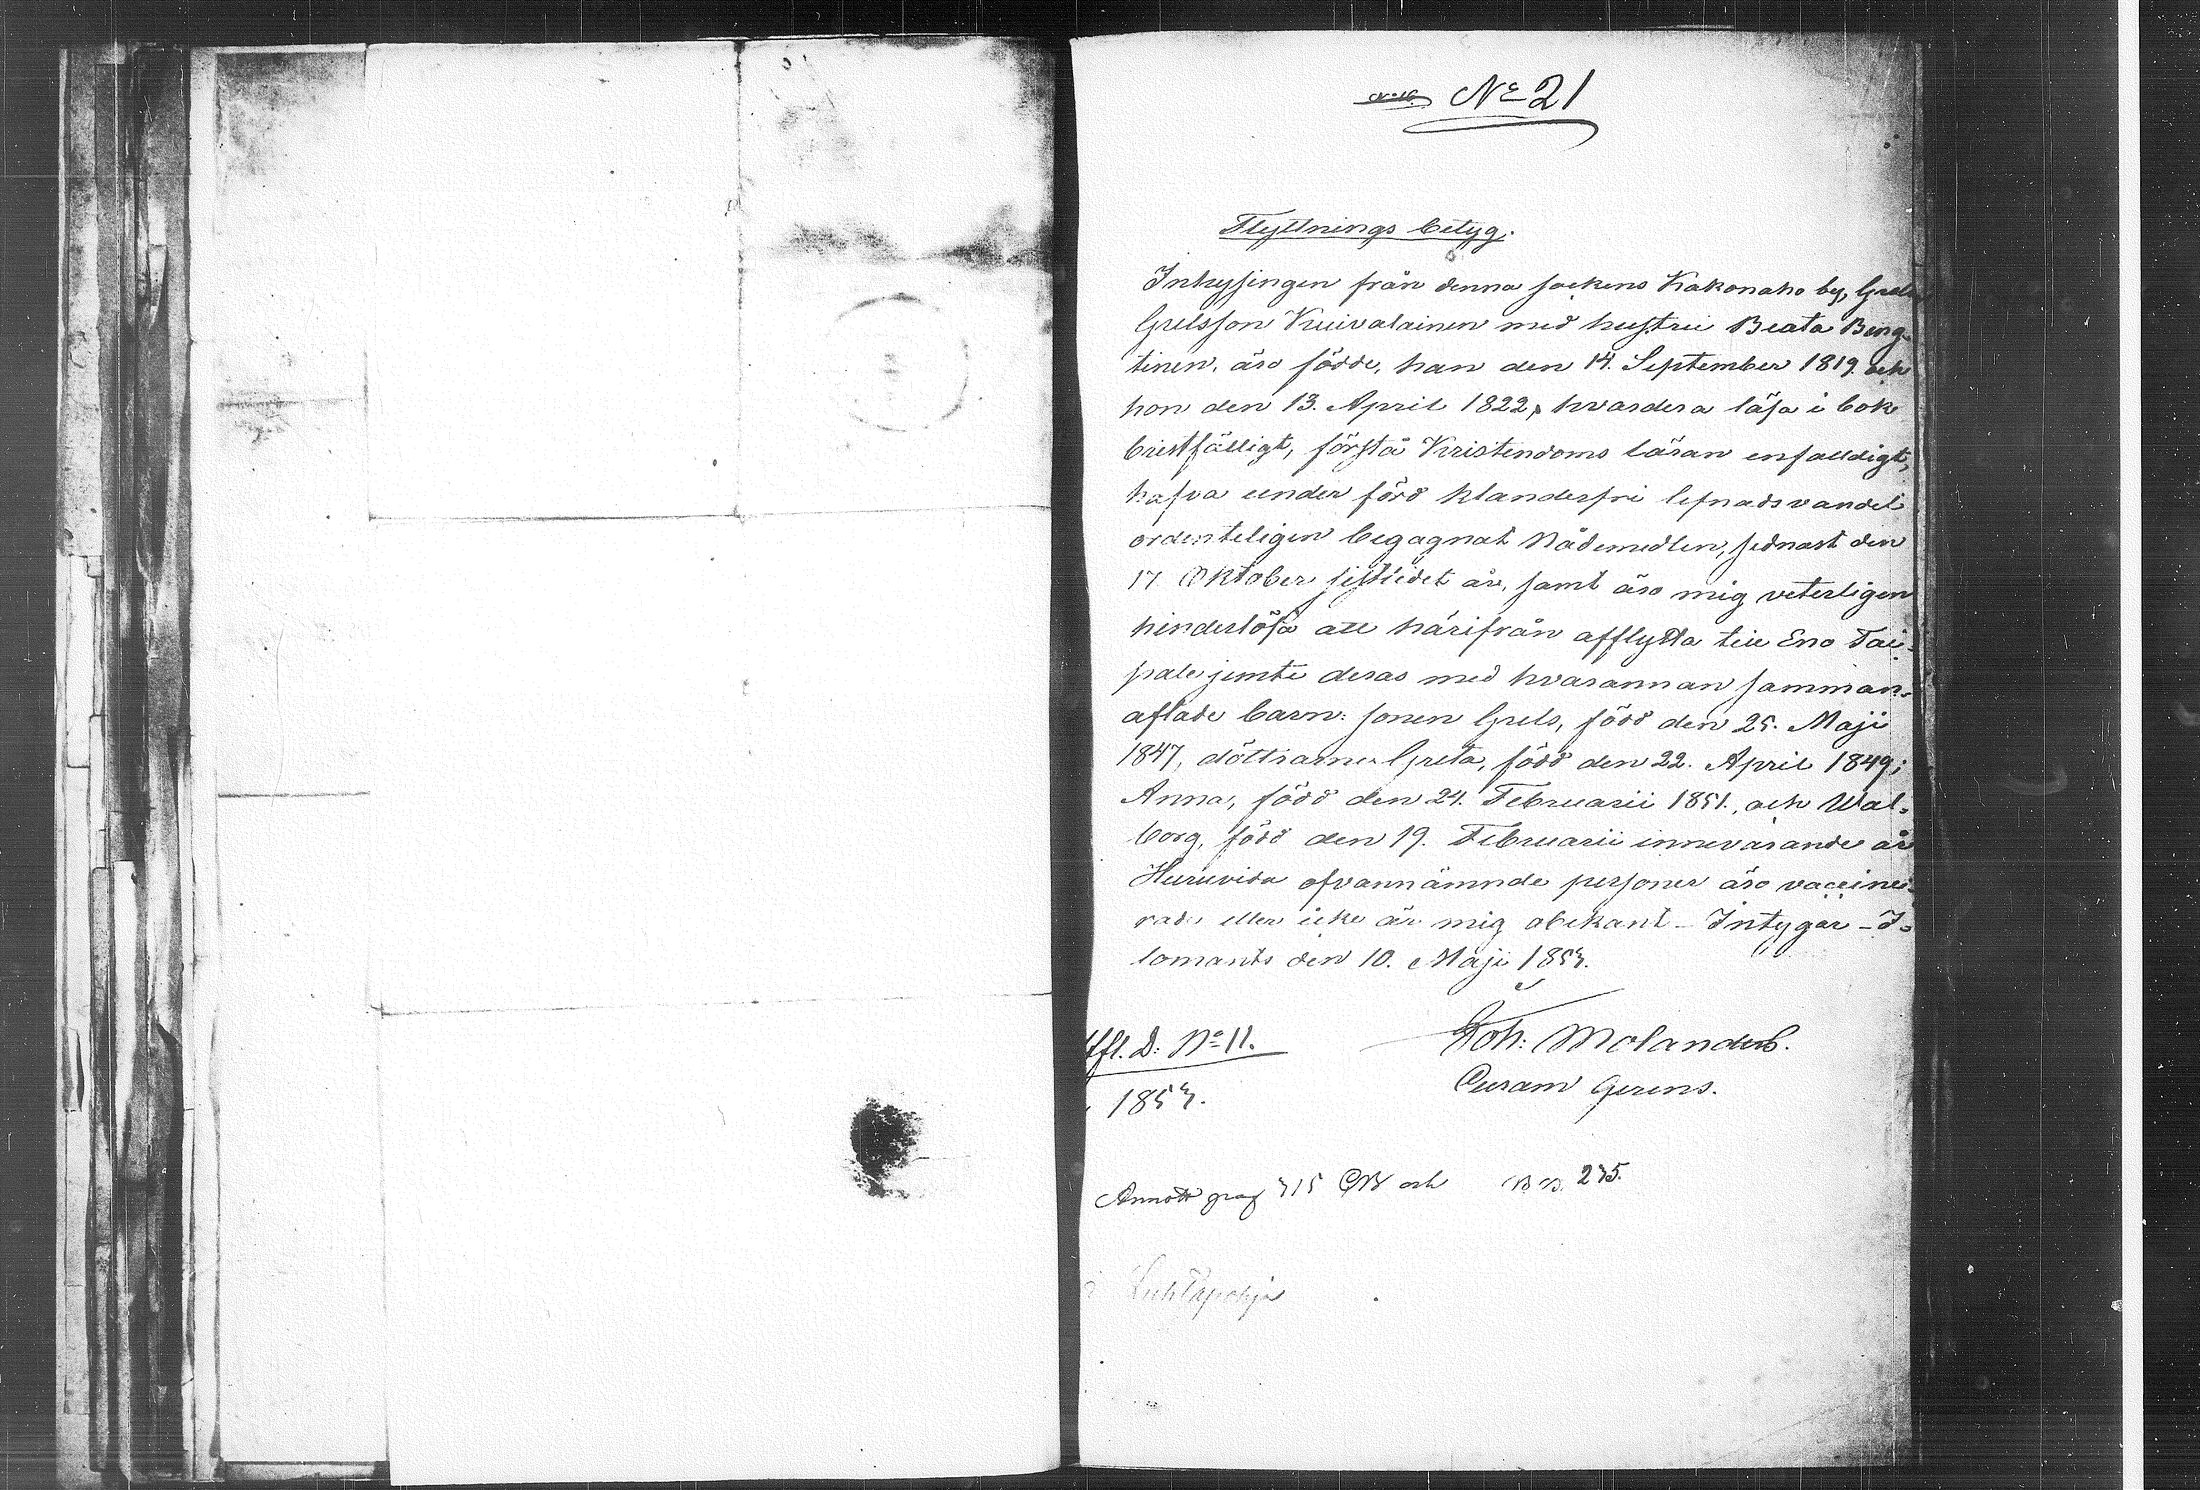 No 21
Flyttnings betyg.
Inhysingen från denna sockens Kakonaho by, Grels
Grelsson Kuivalainen med hustru Beata Beng-
tinen, äro födde, han den 14. September 1819. och
hon den 13. April 1822, hvardera läsa i bok
bristfälligt, förstå Kristendoms läran enfalldigt,
hafva under förd klanderfri lefnadsvandel
ordenteligen begagnat Nådemedlen, sednast den
17. Oktober sistledet år, samt äro mig veterligen
hinderlösa att härifrån afflytta till Eno Tai-
pale jemte deras med hvarannan samman-
aflade barn: sonen Grels, född den 25. Maji
1847, döttrarne Greta, född den 22. April 1849;
Anna, född den 24. Februarii 1851., och Wal-
borg, född den 19. Februarii innevarande år
Huruvida ofvannämnde personer äro vaccine-
rade eller icke är mig obekant - Intygar - I-
lomants den 10. Maji 1853.
Joh: Molander.
Curam Gerens.
ffl. D: No 11.
1853.
Annott pag 315 CB och 235.
Luhtapohja